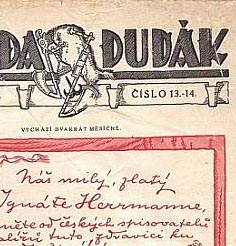 DA DUDÁK
ČÍSLO 13.-14.
VYCHÁZÍ DVAKRÁT MĚSÍČNĚ.
Náš milý, zlatý
Ignáte Herrmanne,
českých spisovatelů
tuto zdravici ku